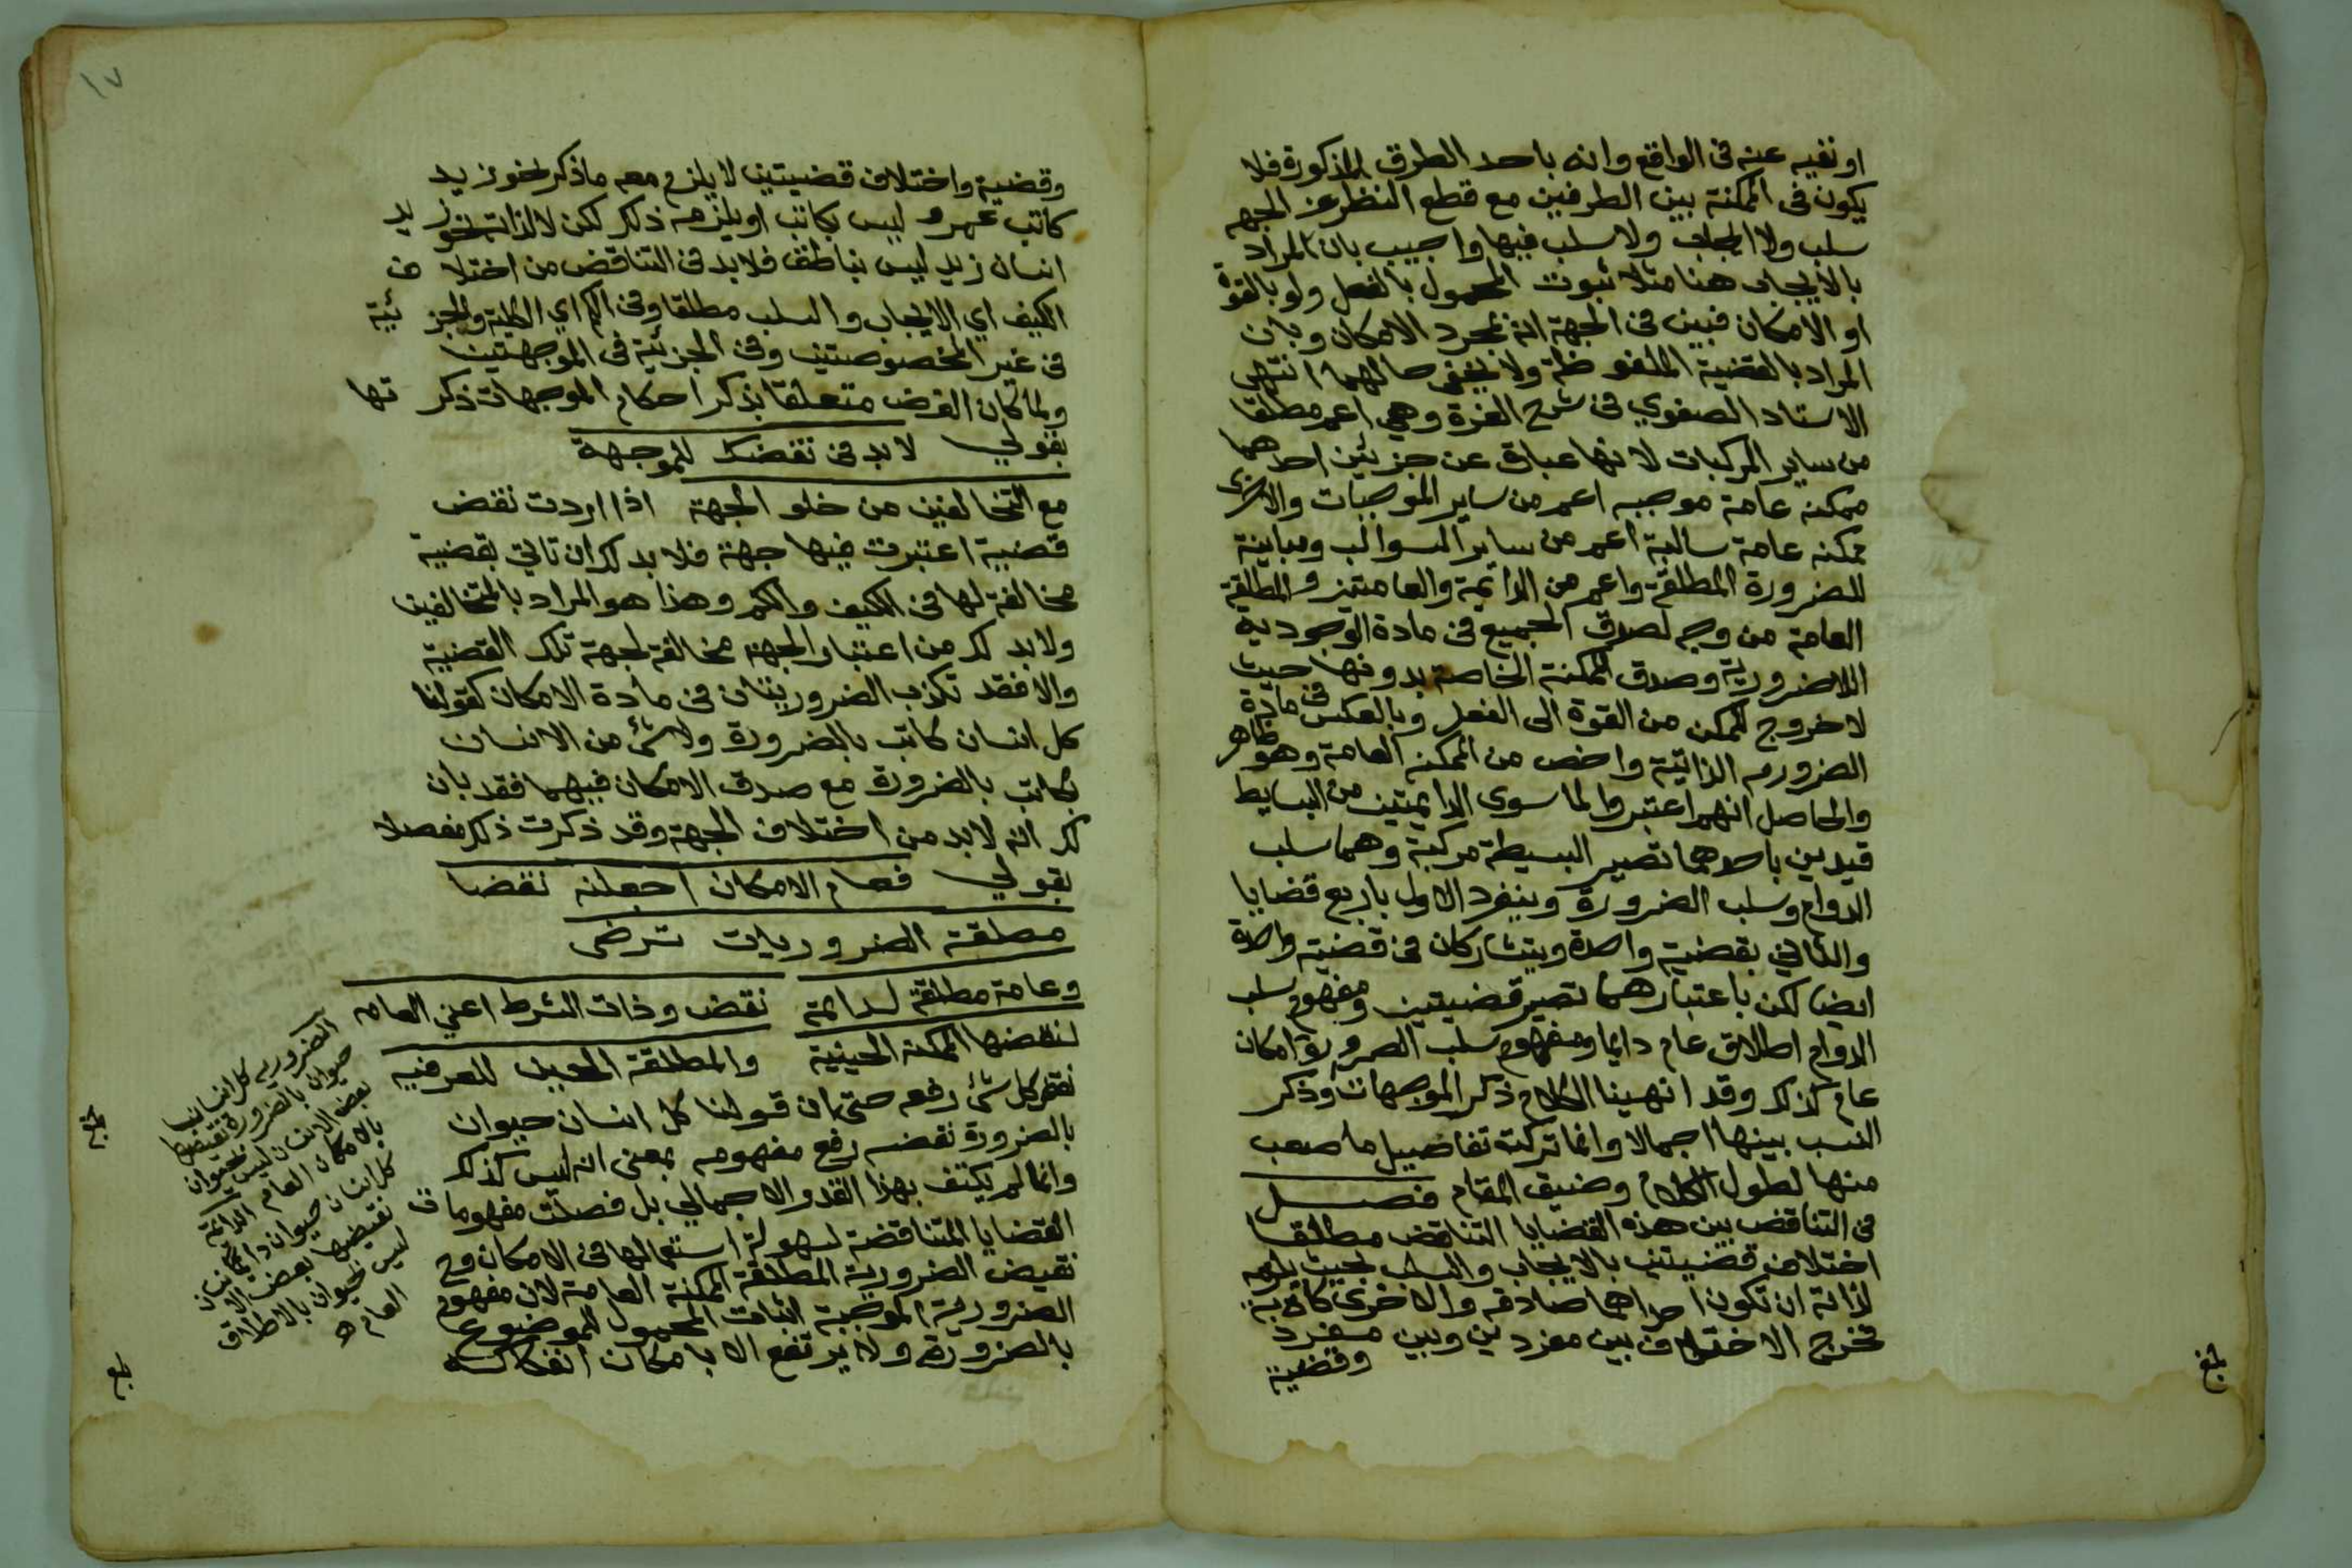 او نفيه عنه فى الواقع وانه باحد الطرق المذكورة فلا
يكون فى الممكنة بين الطرفين مع قطع النظر عن الجهه
سلب ولا ايجاب ولا سلب فيها واجيب بان المراد
بالايجاب هنا مثلا ثبوت المحمول بالفعل ولو بالقوة
او الامكان فبين فى الجهة انه بمجرد الامكان وبان
المراد بالقضية الملفوظة ولا يخفى حالهما انتهى
الاستاد الصفوي فى شرح الغرة وهي اعم مطلقا
من ساير المركبات لانها عبارة عن جزئين احدهما
ممكنه عامة موجبه اعم من ساير الموجبات والاخرى
ممكنه عامة سالبة اعم من ساير السوالب ومباينة
للضرورة المطلقة واعم من الدايمة والعامتين والمطلقة
العامة من وجه لصدق الجميع فى مادة الوجودية
اللاضرورية وصدق الممكنة الخاصة بدونها حيث
لا خروج للممكن من القوة الى الفعل وبالعكس فى مادة
الضرورة الذاتية واخص من الممكنه العامة وهو ظاهر
والحاصل انهم اعتبروا لما سوى الدايمتين من البسايط
قيدين باحدهما تصير البسيطة مركبة وهما سلب
الدوام وسلب الضرورة وينفرد الاول باربع قضايا
والثاني بقضية واحدة ويتشاركان فى قضية واحدة
ايضا لكن باعتبارهما تصير قضيتين ومفهوم سلب
الدوام اطلاق عام دايما ومفهوم سلب الضرورة امكان
عام كذلك وقد انهينا الكلام ذكر الموجهات وذكر
النسب بينها اجمالا وانما تركنه تفاصيل ما صعب
منها لطول الكلام وضيق المقام فصل
فى التناقض بين هذه القضايا التناقض مطلقا
اختلاف قضيتين بالايجاب والسلب بحيث يلزم
لذاته ان تكون احداهما صادقه والاخرى كاذبة
فخرج الاختلاف بين مفردين وبين مفرد
وقضية
وقضية واختلاف قضيتين لا يلزم معه ماذكر نحو زيد
كاتب عمرو ليس بكاتب او يلزمه ذلك لكن لا لذاته نحو زيد
انسان زيد ليس بناطق فلا بد فى التناقض من اختلاف
الكيف اي الايجاب والسلب مطلقا وفى الكم اي الكلية والجزئية
فى غير المخصوصتين وفى الجزئية فى الموجهتين
ولما كان الغرض متعلقا بذكر احكام الموجهات ذكرتها
بقولي لا بد فى نقضك للموجهة
مع التخالفين من خلو الجهة اذا اردت نقض
قضية اعتبرت فيها جهة فلا بد لك ان تاتي بقضية
مخالفة لها فى الكيف والكم وهذا هو المراد بالمتخالفين
ولا بد لك من اعتبار الجهة مخالفة لجهة تلك القضية
والا فقد تكذب الضروريتان فى مادة الامكان كقولنا
كل انسان كاتب بالضرورة ولا شئ من الانسان
بكاتب بالضرورة مع صدق الامكان فيهما فقد بان
لك انه لا بد من اختلاف الجهة وقد ذكرت ذلك مفصلا
بقولي فعام الامكان اجعلنه نقضا
مطلقة الضروريات ترضى
وعامة مطلقة لدائمة نقض وذات الشرط اعني العامه
لنقضها الممكنه الحينية والمطلقة الحين للعرفيه
نقض كل شئ رفعه حتى ان قولنا كل انسان حيوان
بالضرورة نقضه رفع مفهومه بمعنى انه ليس كذلك
وانما لم يكتف بهذا القدر الاجمالي بل فصلت مفهومات
القضايا المتناقضة لسهولة استعمالها فى الامكان وح
نقيض الضرورية المطلقة الممكنة العامة لان مفهوم
الضرورية الموجبة اثبات المحمول للموضوع
بالضرورة ولا يرتفع الا بامكان انفكاكه
الضروريه كل انسان
حيوان بالضرورة نقيضها
بعض الانسان ليس بحيوان
بالامكان العام الدائمة
كل انسان حيوان دائما
نقيضها بعض الانسان
ليس بحيوان بالاطلاق
العام
١٧